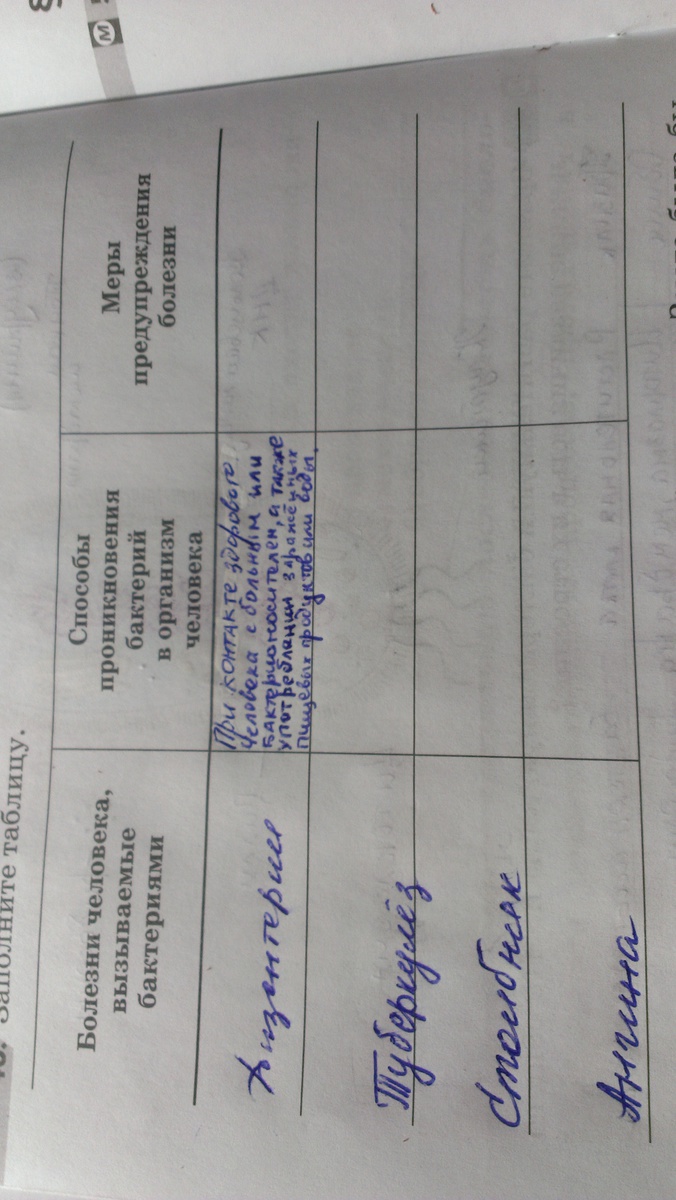 Заполните таблицу.
Болезни человека,
вызываемые
бактериями
Способы
проникновения
бактерий
в организм
человека
Меры
предупреждения
болезни
Дизентерия
При контакте здорового
человека с больным или
бактерионосителем, а также
употреблении заражённых
пищевых продуктов или воды.
Туберкулёз
Столбняк
Ангина